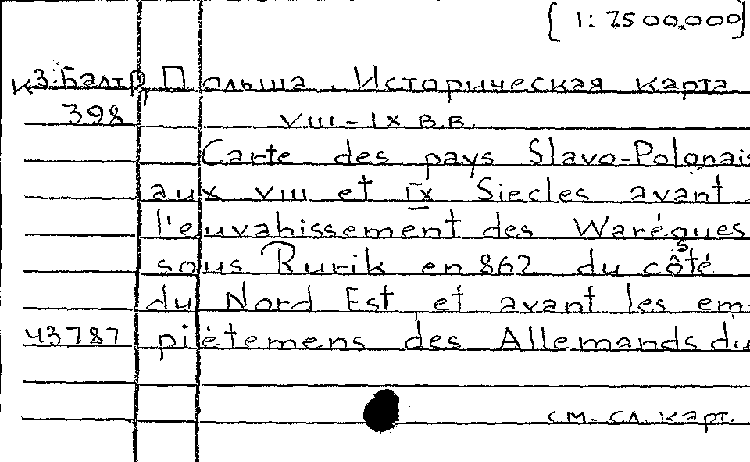 [1: 7500,000]
К 3. Балтр, Польша. Историческая карта
398 VIII - IX в.в.
Carte des pays Slavo-Polonais
aux VIII et IX Siecles avant
l'euvahissement des Warégues
sous Rurik en 862 du côté
du Nord Est et avant les em-
43787 piètemens des Allemands du
см. сл. карт.